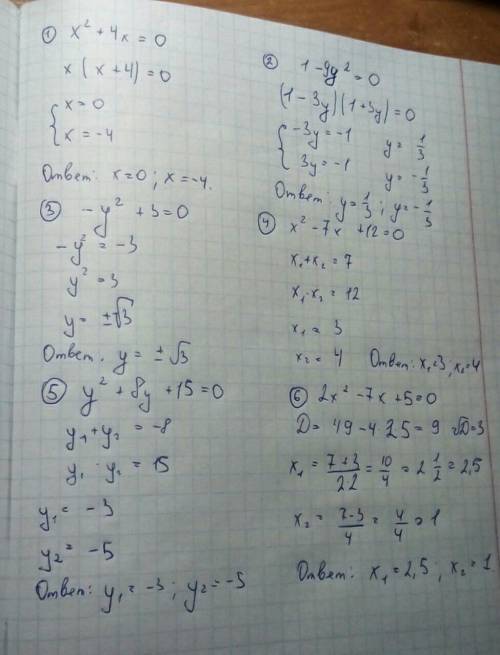 ① x² + 4x = 0
x ( x + 4) = 0
{ x = 0
{ x = -4
Ответ: x=0 ; x=-4.
② 1 - 9y² = 0
(1 - 3y)(1+3y)=0
{ -3y = -1   y = 1/3
{ 3y = -1   y = -1/3
Ответ: y = 1/3 ; y = -1/3
③ - y² + 3 = 0
- y² = -3
y² = 3
y = ±√3
Ответ. y = ±√3
④ x² - 7x + 12 = 0
x₁+x₂ = 7
x₁·x₂ = 12
x₁ = 3
x₂ = 4   Ответ: x₁=3 ; x₂=4
⑤ y² + 8y + 15 = 0
y₁ + y₂ = -8
y₁ · y₂ = 15
y₁ = -3
y₂ = -5
Ответ: y₁ = -3 ; y₂ = -5
⑥ 2x² - 7x + 5 = 0
D = 49 - 4·2·5 = 9   √D=3
x₁ = (7+3)/(2·2) = 10/4 = 2 1/2 = 2,5
x₂ = (7-3)/4 = 4/4 = 1
Ответ: x₁ = 2,5 ; x₂ = 1